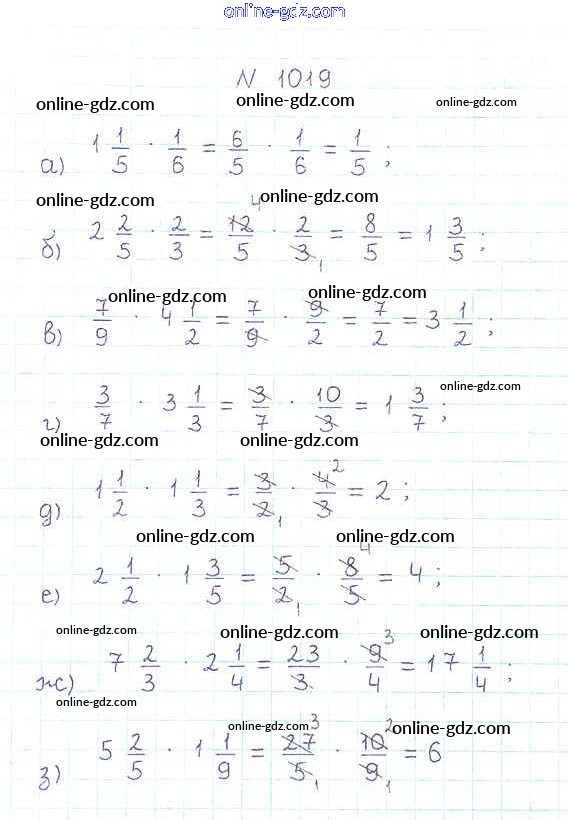 online-gdz.com
N 1019
online-gdz.com online-gdz.com online-gdz.com
а) 1 1/5 · 1/6 = 6/5 · 1/6 = 1/5 ;
online-gdz.com online-gdz.com
б) 2 2/5 · 2/3 = 12 4/5 · 2/3 1 = 8/5 = 1 3/5 ;
online-gdz.com online-gdz.com
в) 7/9 · 4 1/2 = 7/9 · 9/2 = 7/2 = 3 1/2 ;
online-gdz.com
г) 3/7 · 3 1/3 = 3/7 · 10/3 = 1 3/7 ;
online-gdz.com online-gdz.com
д) 1 1/2 · 1 1/3 = 3/2 1 · 4 2/3 = 2 ;
online-gdz.com online-gdz.com
е) 2 1/2 · 1 3/5 = 5/2 1 · 8 4/5 = 4 ;
online-gdz.com online-gdz.com online-gdz.com
ж) 7 2/3 · 2 1/4 = 23/3 · 9 3/4 = 17 1/4 ;
online-gdz.com
online-gdz.com online-gdz.com
з) 5 2/5 · 1 1/9 = 27 3/5 1 · 10 2/9 1 = 6